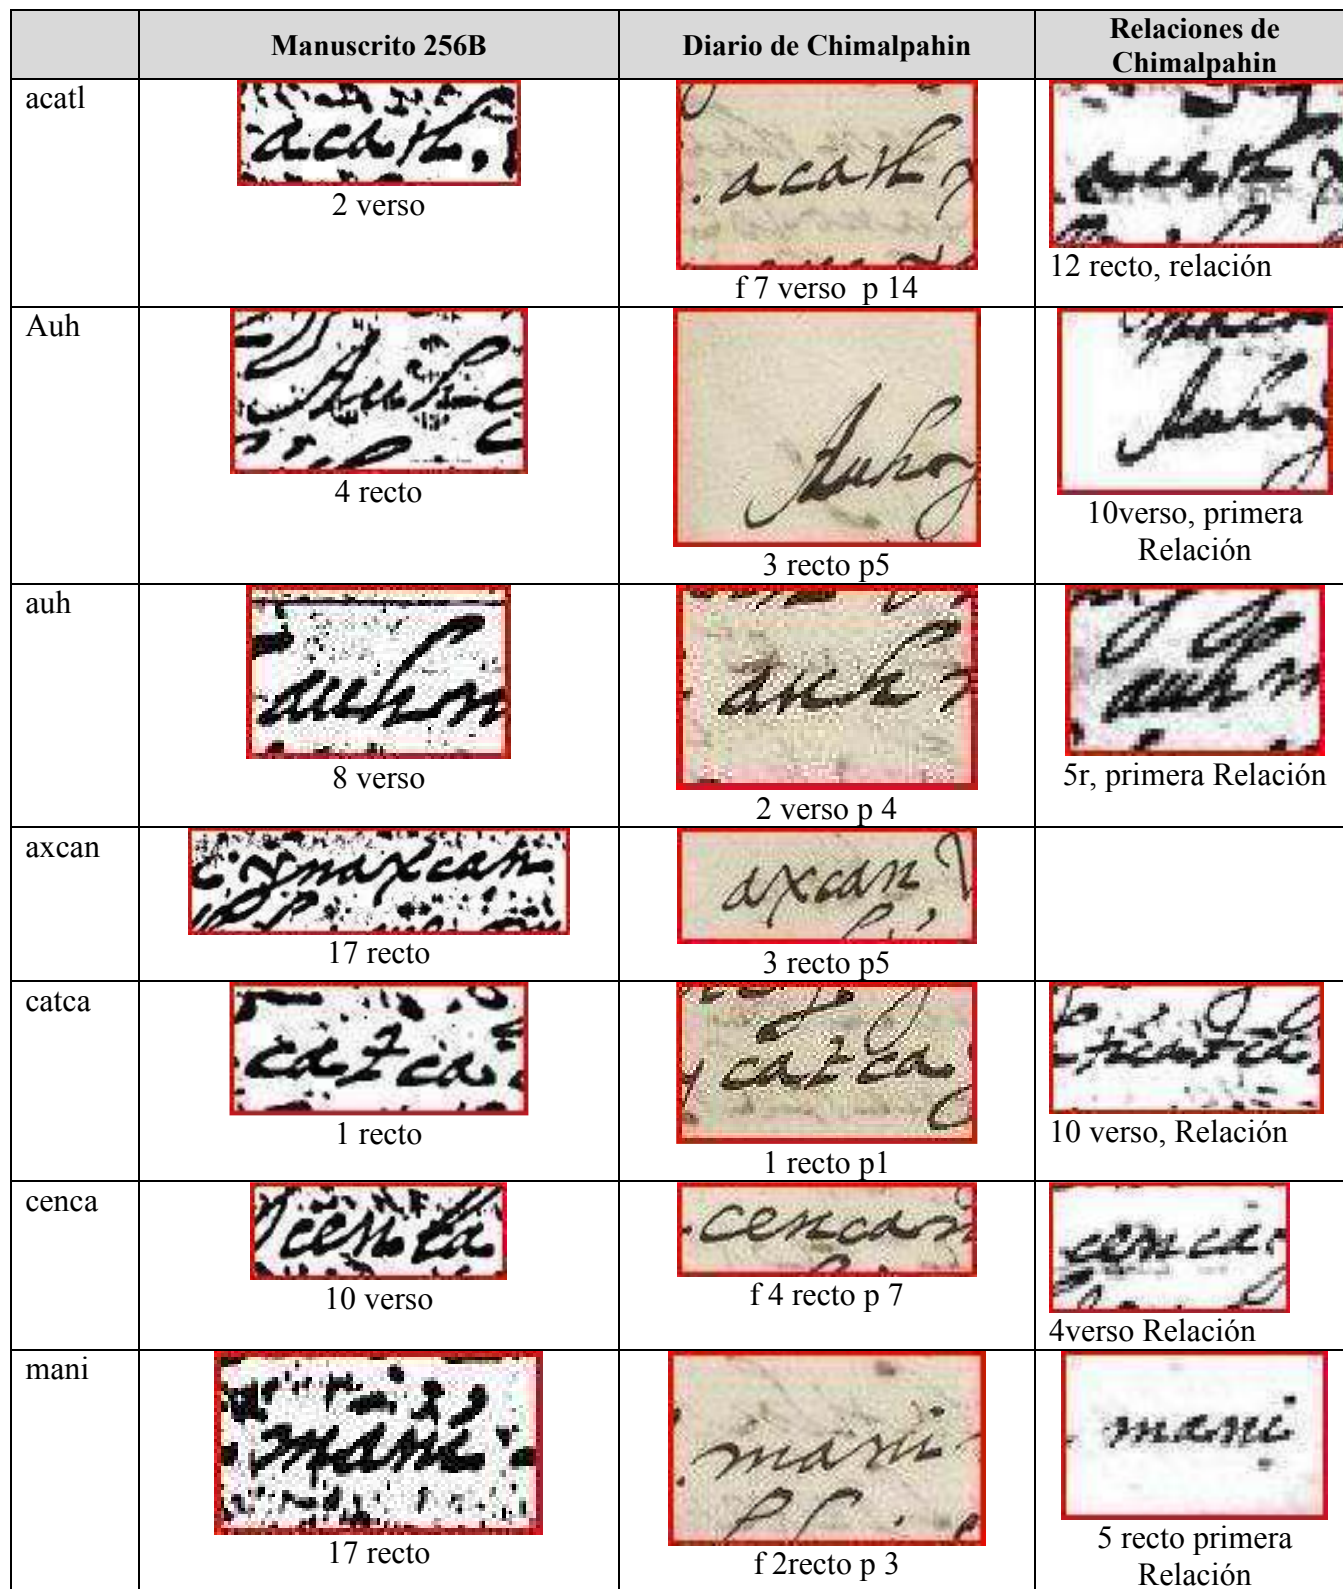 Manuscrito 256B
Diario de Chimalpahin
Relaciones de
Chimalpahin
acatl
acatl,
2 verso
acatl
f 7 verso p 14
acatl
12 recto, relación
Auh
Auh
4 recto
Auh
3 recto p5
Auh
10verso, primera
Relación
auh
auh
8 verso
auh
2 verso p 4
auh
5r, primera Relación
axcan
ynaxcan
17 recto
axcan
3 recto p5
catca
catca
1 recto
catca
1 recto p1
catca
10 verso, Relación
cenca
cenca
10 verso
cenca
f 4 recto p 7
cenca
4verso Relación
mani
mani
17 recto
mani
f 2recto p 3
mani
5 recto primera
Relación